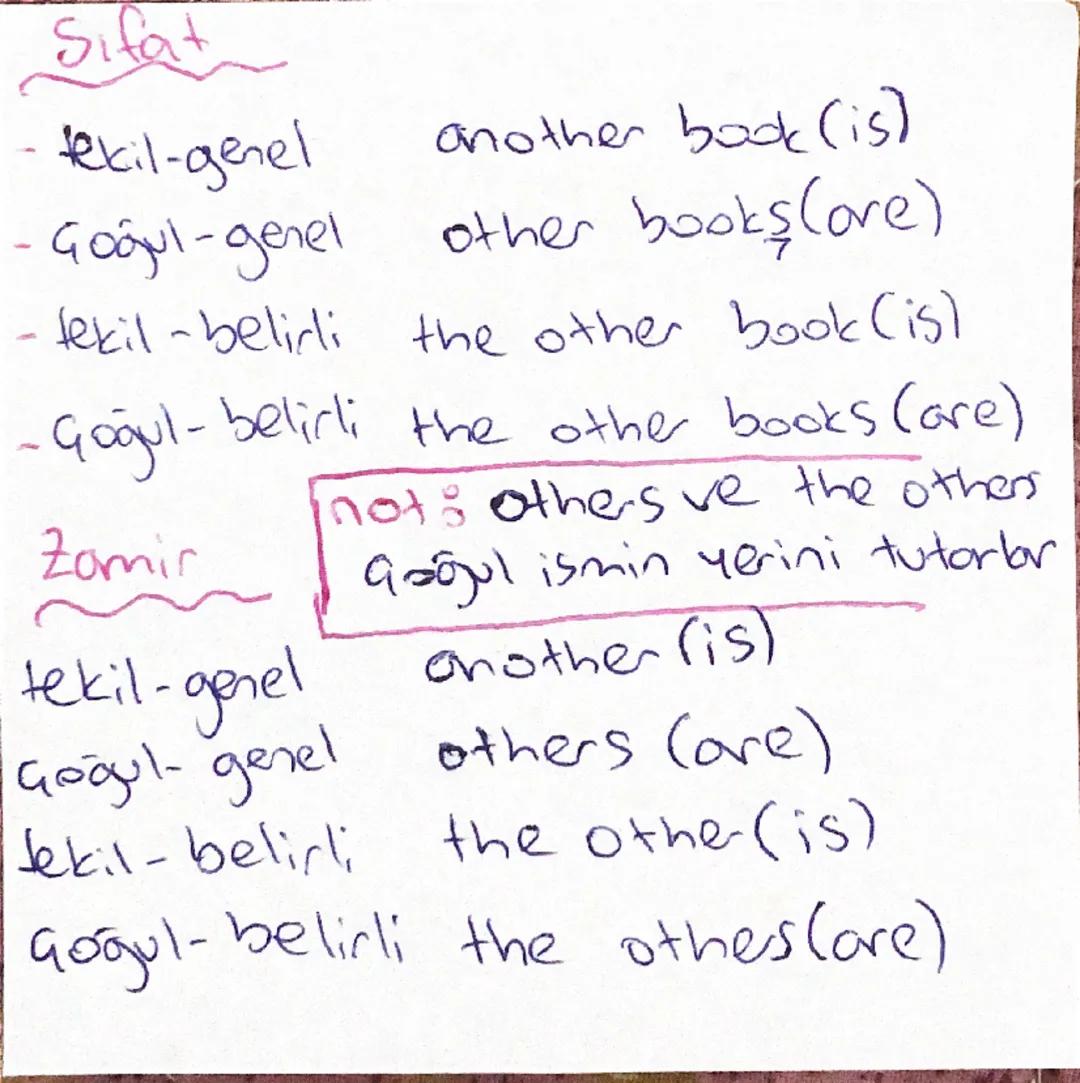 Sıfat
- tekil-genel another book (is)
- Çoğul-genel other books (are)
- tekil-belirli the other book (is)
- Çoğul-belirli the other books (are)
not: others ve the others
çoğul ismin yerini tutarlar
Zamir
tekil-genel another (is)
Çoğul-genel others (are)
tekil-belirli the other (is)
Çoğul-belirli the othes (are)